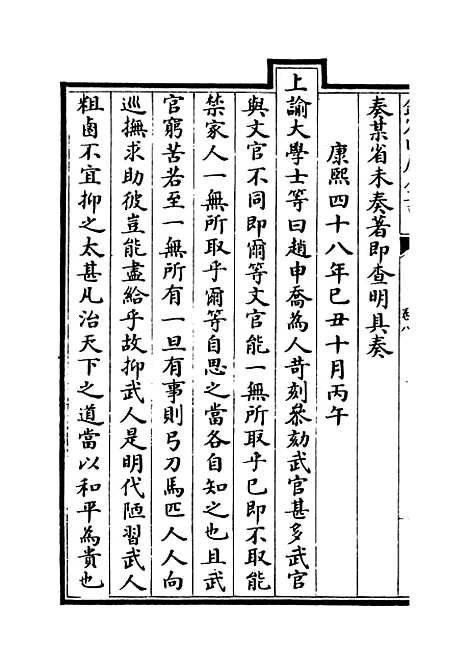 奏某省未奏著即查明具奏
康熙四十八年己丑十月丙午
上諭大學士等曰趙申喬為人苛刻叅劾武官甚多武官
與文官不同即爾等文官能一無所取乎已即不取能
禁家人一無所取乎爾等自思之當各自知之也且武
官窮苦若至一無所有一旦有事則弓刀馬匹人人向
巡撫求助彼豈能盡給乎故抑武人是明代陋習武人
粗鹵不宜抑之太甚凡治天下之道當以和平為貴也